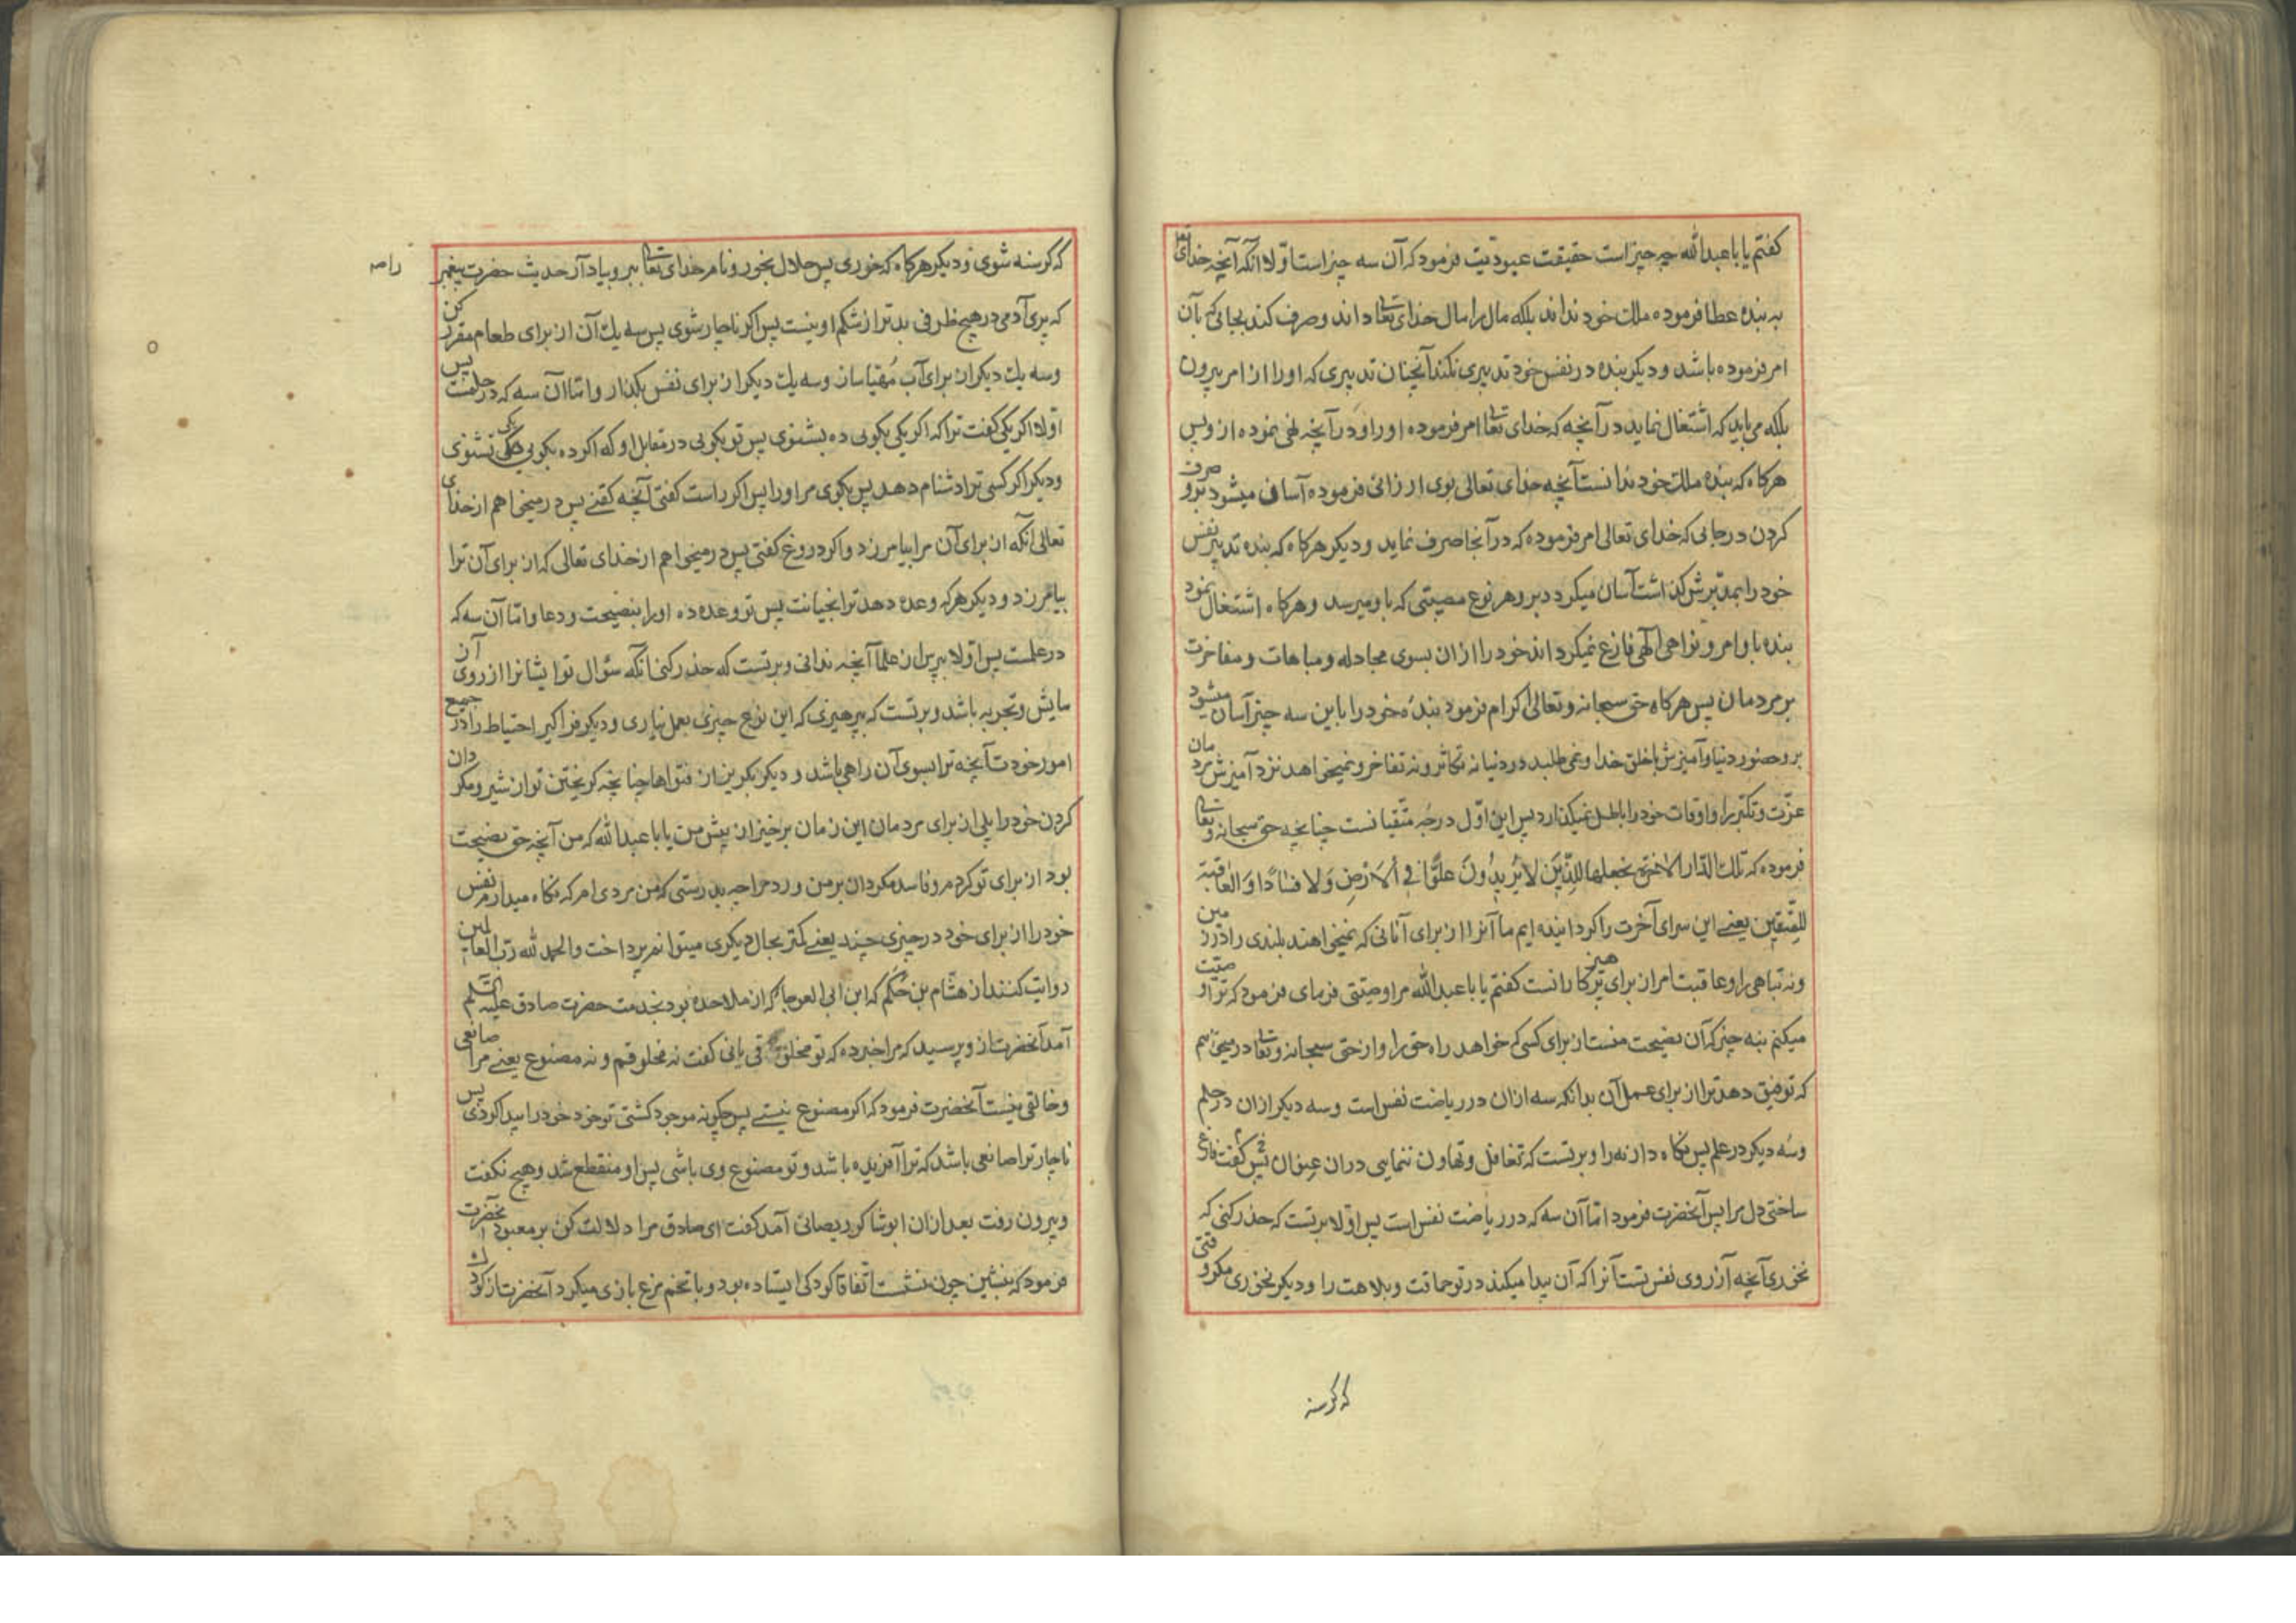 کفتم یا باعبدالله چه چیز است حقیقت عبودیت فرمود که آن سه چیز است اوّلا انکه آنچه خدای تعا
به بنده عطا فرموده ملک خود نداند بلکه مال را مال خدای تعالی داند و صرف کند بجائی که بآن
امر فرموده باشد و دیکر بنده در نفس خود تدبیری نکند آنچنان تدبیری که او را از امر بیرون
بلکه می باید که اشتغال نماید در آنچه که خدای تعالی امر فرموده او را و در آنچه نهی نموده از وپس
هرکاه که بنده ملک خود ندانست آنچه خدای تعالی بوی ارزانی فرموده آسان میشود برو صرف
کردن در جایی که خدای تعالی امر فرموده که در آنجا صرف نماید و دیکر هرکاه که بنده تدبیر نفس
خود را بمدبّرش کذاشت آسان میکردد برو هر نوع مصیبتی که باو میرسد و هرکاه اشتغال نمود
بنده باوامر و نواهی الهی فارغ نمیکرداند خود را از ان بسوی مجادله و مباهات و مفاخرت
بر مردمان پس هرکاه حق سبحانه و تعالی اکرام فرمود بندهٔ خود را باین سه چیز آسان میشود
برو حضور دنیا و آمیزش باخلق خدا و نمی طلبد در دنیا نه تکاثر و نه تفاخر و نمیخواهد نزد آمیزش مردمان
عزّت و تکبّر را و اوقات خود را باطل نمیکذارد پس این اوّل درجهٔ متّقیانست چنانچه حق سبحانه وتعالی
فرموده که تلک الدّار الآخرة نجعلها للّذین لا یُریدُونَ علوًّا فی الاَرضِ وَلا فسادًا وَالعاقبة
للمتّقین یعنی این سرای آخرت را کردانیده ایم ما آنرا از برای آنانی که نمیخواهند بلندی را در زمین
ونه تباهی را و عاقبت مر از برای پرهیزکارانست کفتم یا باعبدالله مرا وصیّتی فرمای فرمود که ترا وصیّت
میکنم بنه چیز که آن نصیحت منست از برای کسی که خواهد راه حق را و از حق سبحانه وتعالی در میخواهم
که توفیق دهد ترا از برای عمل آن بدانکه سه ازان در ریاضت نفس است وسه دیکر ازان در حلم
وسه دیکر در علم پس نکاه دار نه را و برتست که تغافل و تهاون ننمایی دران عنوان پس کفت فارغ
ساختی دل مرا پس آنحضرت فرمود امّا آن سه که در ریاضت نفس است پس اوّلا برتست که حذر کنی که
نخوری آنچه از روی نفس تست آنرا که آن پیدا میکند در تو حماقت و بلاهت را و دیکر نخوری مکر وقتی
که کرسنه
که کرسنه شوی و دیکر هرکاه که خوری پس حلال بخور و نام خدای تعالی ببر و بیاد آر حدیث حضرت پیغمبر
را
که پری آدمی در هیچ ظرفی بدتر از شکم او نیست پس اکر ناچار شوی پس سه یک آن از برای طعام مقرر کن
وسه یک دیکر از برای آب مُهیّا ساز وسه یک دیکر از برای نفس بکذار و امّا آن سه که در حلمست پس
اوّلا اکر یکی کفت ترا که اکر یکی بکویی ده بشنوی پس تو بکویی در مقابل او که اکر ده بکویی یکی نشنوی
ودیکر اکر کسی ترا دشنام دهد پس بکوی مر او را پس اکر راست کفتی آنچه کفتی پس در میخواهم از خدای
تعالی آنکه از برای آن مرا بیامرزد و اکر دروغ کفتی پس در میخواهم از خدای تعالی که از برای آن ترا
بیامرزد و دیکر هرکه وعده دهد ترا بخیانت پس تو وعده ده او را بنصیحت و دعا و امّا آن سه که
در علمست پس اوّلا بپرس از علما آنچه ندانی و برتست که حذر کنی از آنکه سؤال تو ایشانرا از روی
مایش و تجربه باشد و برتست که بپرهیزی که این نوع چیزی بعمل نیاری و دیکر فرا کیر احتیاط را در جمیع
امور خودت آنچه ترا بسوی آن راهی باشد و دیکر بکریز از فتواها چنانچه کریختن تو از شیر و مکردان
کردن خود را پلی از برای مردمان این زمان برخیز از پیش من یا باعبدالله که من آنچه حق نصیحت
بود از برای تو کردم و فاسد مکردان بر من ورد مرا چه بدرستی که من مردی ام که نکاه میدارم نفس
خود را از برای خود در چیزی چند یعنی کمتر بحال دیکری میتوانم پرداخت والحمد لله ربّ العالمین
روایت کنند از هشام بن حَکَم که ابن ابی العوجا که از ملاحده بود بخدمت حضرت صادق علیه السّلم
آمد آنحضرت از و پرسید که مرا خبر ده که تو مخلوقی یا نی کفت نه مخلوقم و نه مصنوع یعنی مرا صانعی
وخالقی نیست آنحضرت فرمود که اکر مصنوع نیستی پس چکونه موجود کشتی تو خود خود را پیدا کردی پس
ناچار ترا صانعی باشد که ترا آفریده باشد و تو مصنوع وی باشی پس او منقطع شد و هیچ نکفت
وبیرون رفت بعد ازان ابوشاکر دیصانی آمد کفت ای صادق مرا دلالت کن بر معبود آنحضرت
فرمود که بنشین چون نشست اتّفاقا کودکی ایستاده بود و با تخم مرغ بازی میکرد آنحضرت از کودک